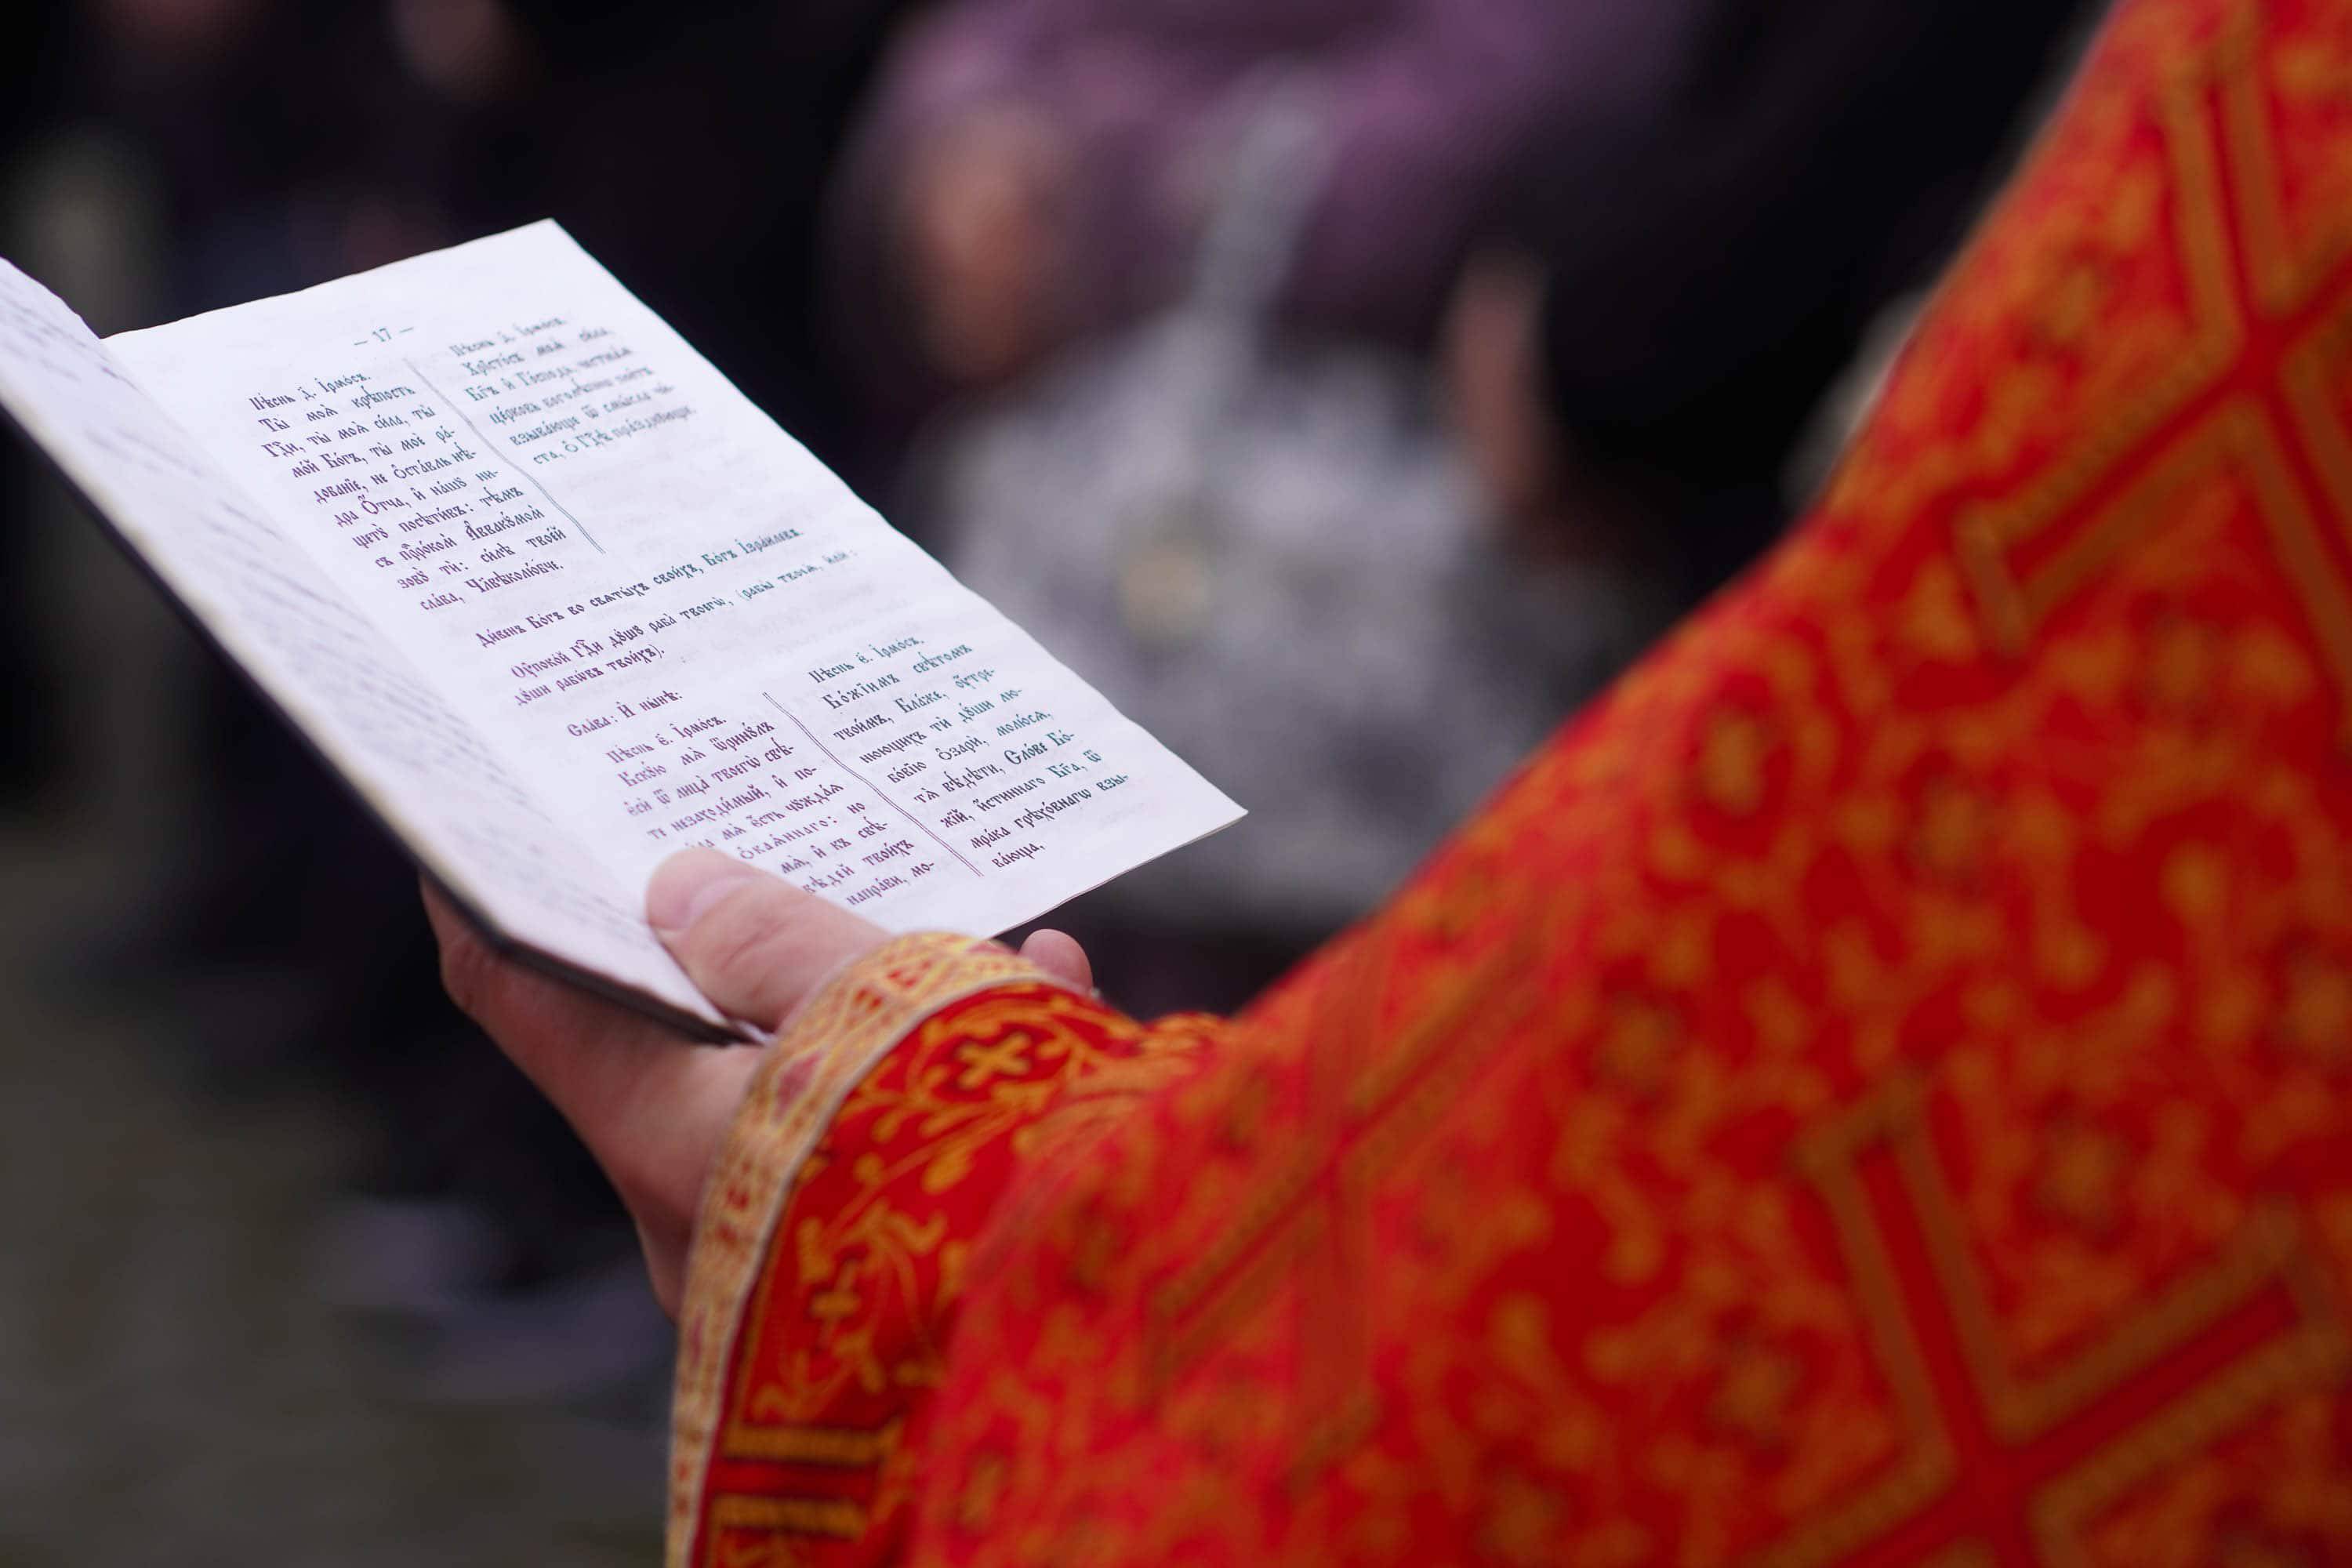 — 17 —
Пѣ́снь д҃. І҆рмо́съ.
Ты̀ моѧ̀ крѣ́пость
Гдⷭ҇и, ты̀ моѧ̀ си́ла, ты̀
мо́й Бо́гъ, ты̀ моѐ ра́-
дованїе, не ѡ҆ста́вль нѣ́-
дра Ѻ҆́тча, и҆ на́шꙋ ни-
щетꙋ̀ посѣти́въ: тѣ́мъ
съ прⷪ҇ро́комъ А҆ввакꙋ́момъ
зовꙋ́ ти: си́лѣ твое́й
сла́ва, Чл҃вѣколю́бче.
Пѣ́снь д҃. І҆рмо́съ.
Хрⷭ҇то́съ моѧ̀ си́ла,
Бг҃ъ и҆ Го́сподь, честна́ѧ
це́рковь боголѣ́пнѡ пое́тъ
взыва́юще ѿ смы́сла чи́-
ста, ѡ҆ Гдⷭ҇ѣ пра́зднꙋюще.
Ди́венъ Бо́гъ во свѧты́хъ свои́хъ, Бо́гъ І҆зра́илевъ.
Оу҆поко́й Гдⷭ҇и дꙋ́шꙋ раба̀ твоегѡ̀, (рабы̀ твоеѧ̀, и҆лѝ:
дꙋ́ши рабѡ́въ твои́хъ).
Сла́ва: И҆ ны́нѣ:
Пѣ́снь є҃. І҆рмо́съ.
Вскꙋ́ю мѧ̀ ѿри́нꙋлъ
є҆сѝ ѿ лица̀ твоегѡ̀ свѣ́-
те незаходи́мый, и҆ по-
мѧ̀ є҆́сть чꙋжда́ѧ
ѻ҆каѧ́ннаго: но
мѧ̀, и҆ къ свѣ́-
твои́хъ
напра́ви, мо-
Пѣ́снь є҃. І҆рмо́съ.
Бо́жїимъ свѣ́томъ
твои́мъ, Бла́же, оу҆́тре-
нюющихъ тѝ дꙋ́ши лю-
бо́вїю ѡ҆зарѝ, молю́сѧ,
тѧ̀ вѣ́дѣти, Сло́ве Бо́-
жїй, и҆́стиннаго Бг҃а, ѿ
мра́ка грѣхо́внагѡ взы-
ва́юща.